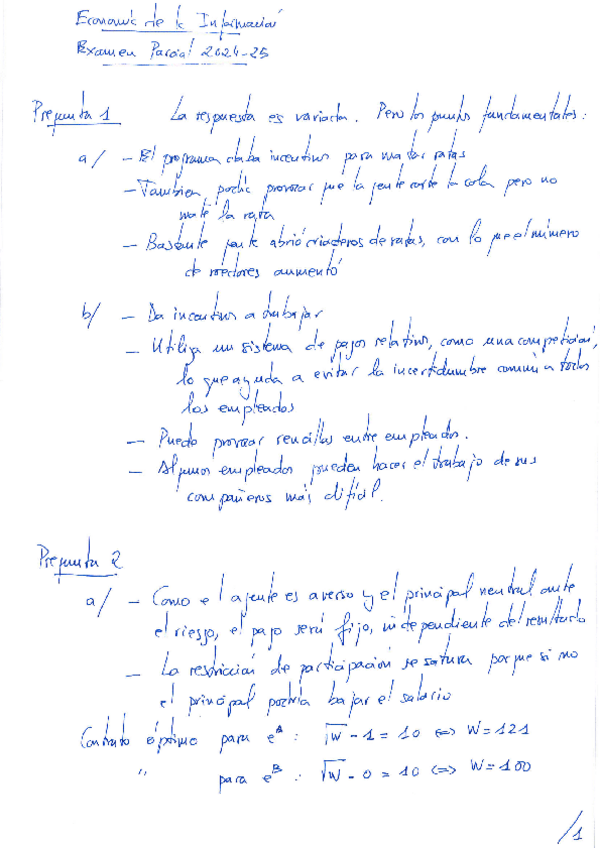 Economía de la Información
Examen Parcial 2024-25
Pregunta 1 La respuesta es variada. Pero los puntos fundamentales:
a/ - El programa daba incentivos para matar ratas
- También podía provocar que la gente corte la cola pero no
mate la rata
- Bastante gente abrió criaderos de ratas, con lo que el número
de roedores aumentó
b/ - Da incentivos a trabajar
- Utiliza un sistema de pagos relativos, como una competición,
lo que ayuda a evitar la incertidumbre común a todos
los empleados
- Puede provocar rencillas entre empleados.
- Algunos empleados pueden hacer el trabajo de sus
compañeros más difícil.
Pregunta 2
a/ - Como el agente es averso y el principal neutral ante
el riesgo, el pago será fijo, independiente del resultado
- La restricción de participación se satura porque si no
el principal podría bajar el salario
Contrato óptimo para e^A : √W - 1 = 10 <=> W = 121
" para e^B : √W - 0 = 10 <=> W = 100
/1